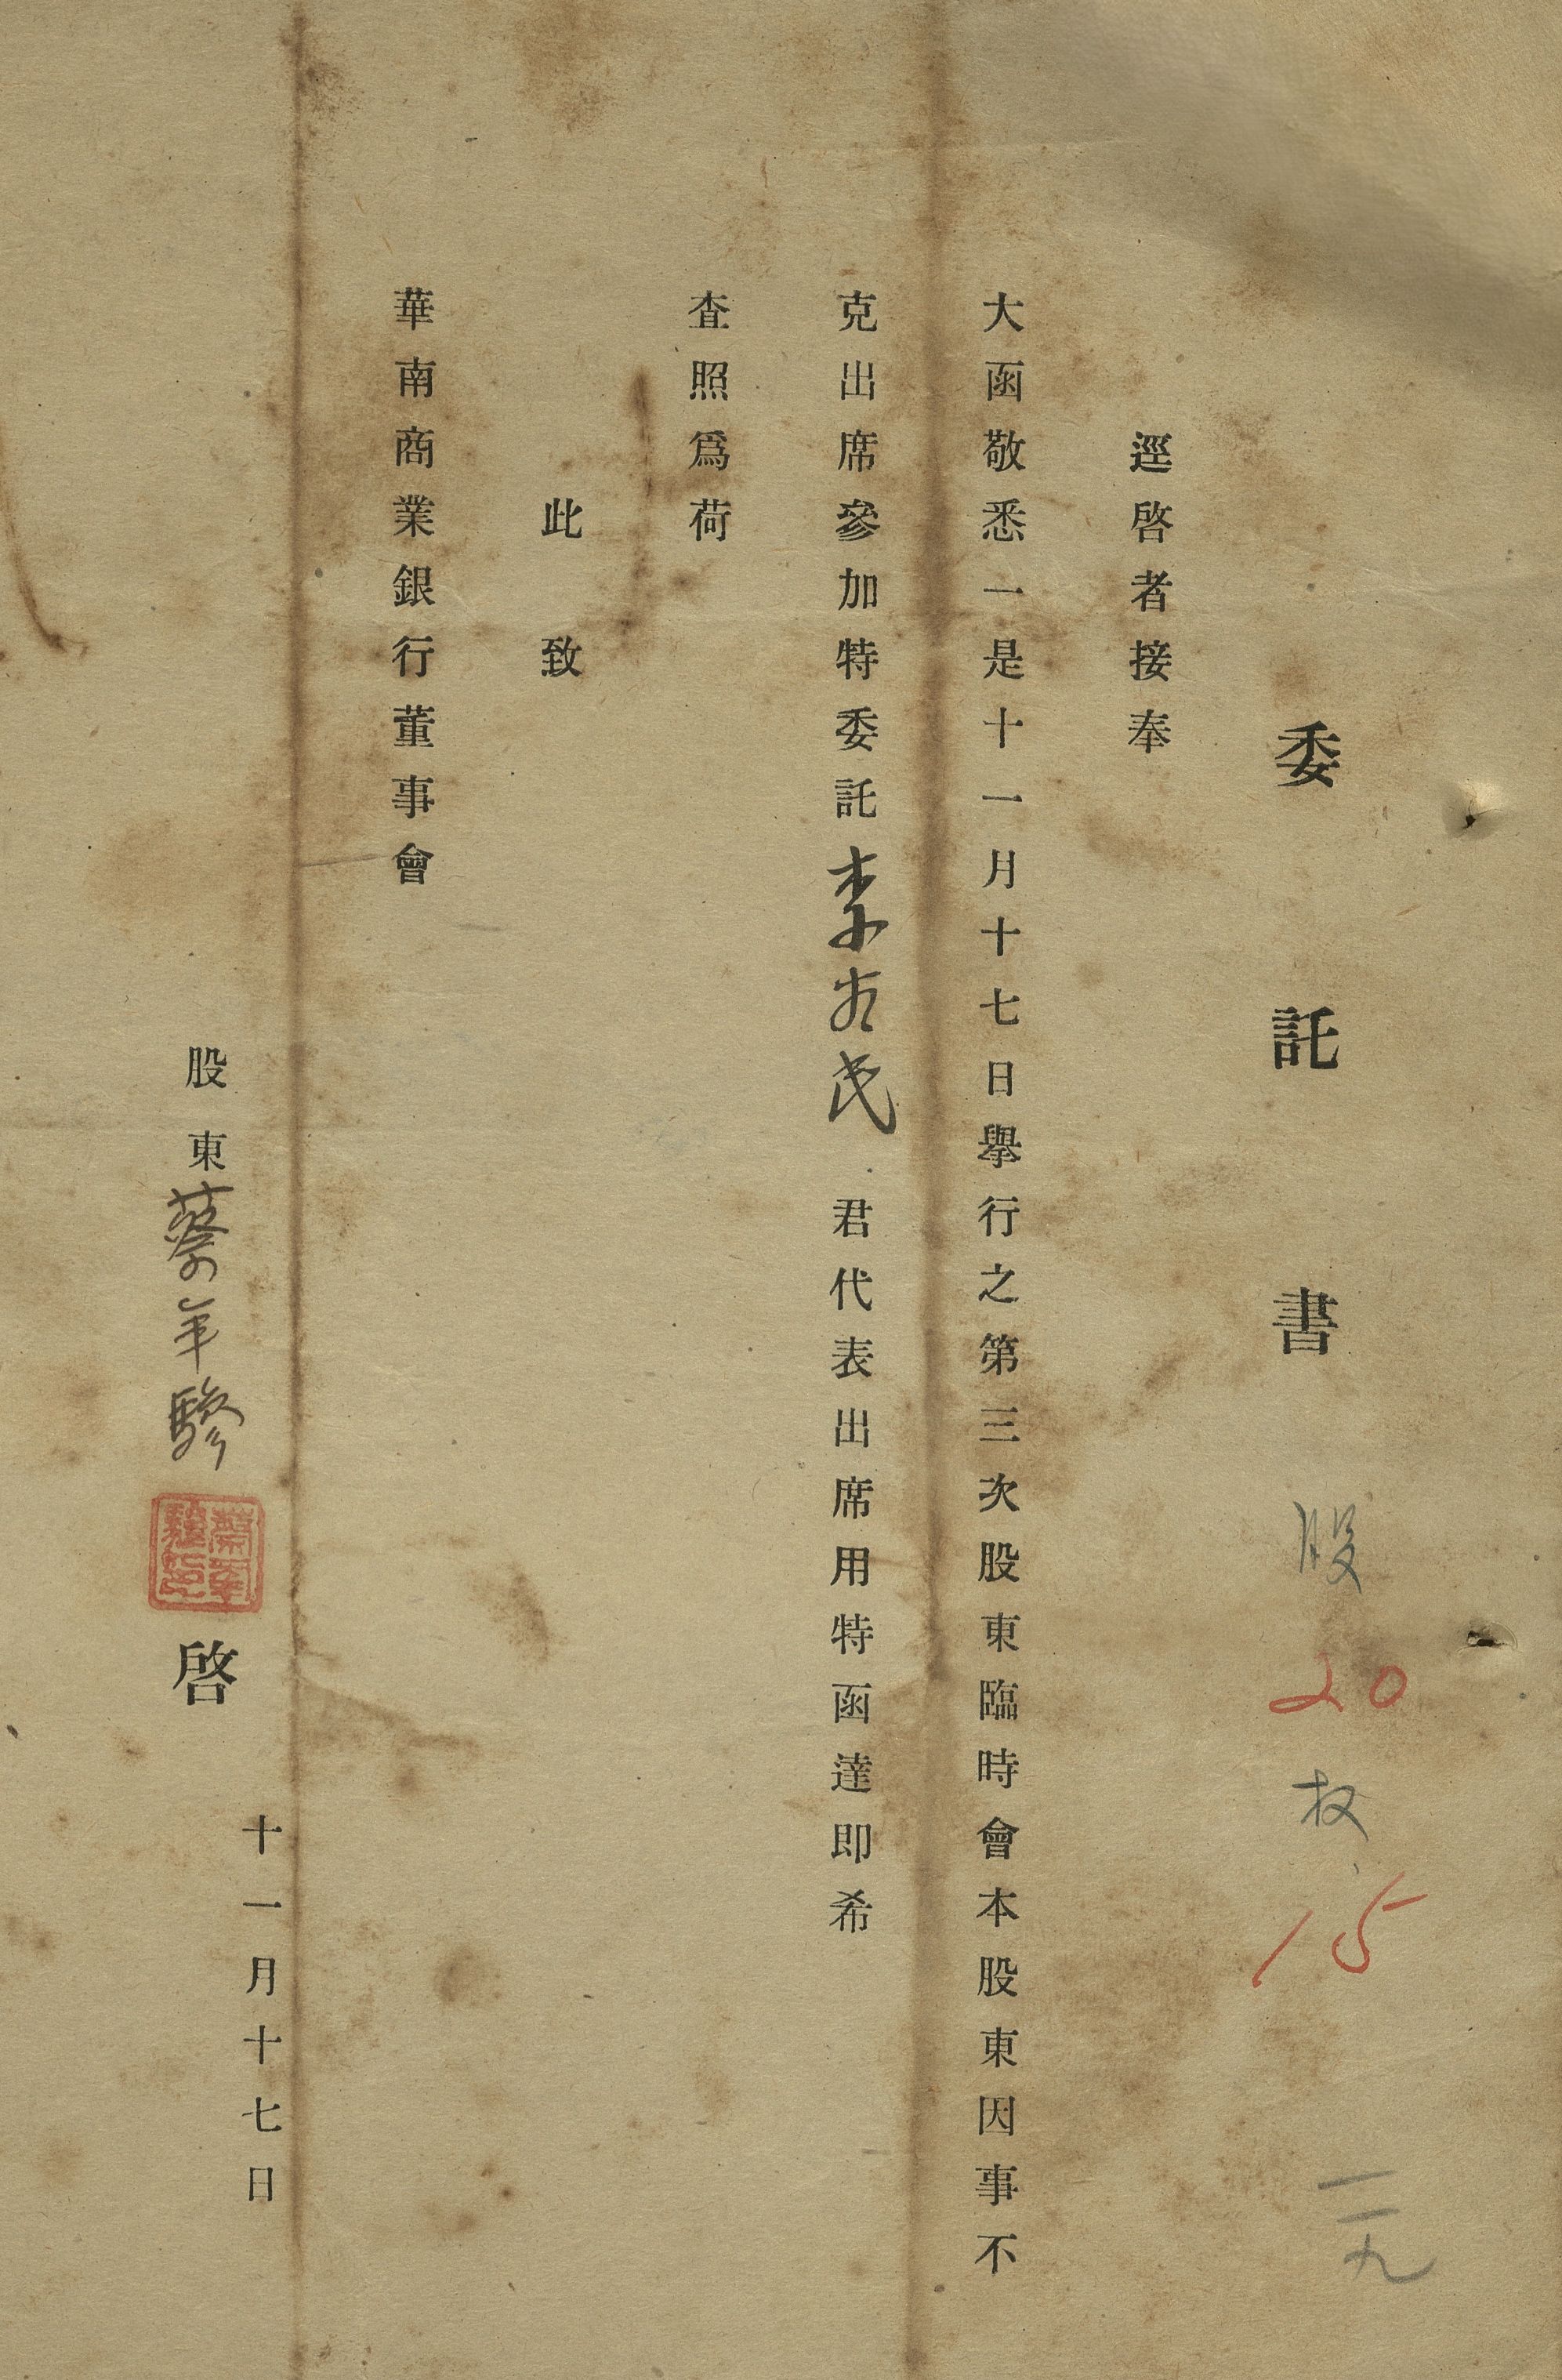 委託書 股 20 权 15
逕啓者接奉
大函敬悉一是十一月十七日舉行之第三次股東臨時會本股東因事不
克出席參加特委託李 民 君代表出席用特函達即希
査照爲荷
此致
華南商業銀行董事會
股東蔡年驂 啓
十一月十七日